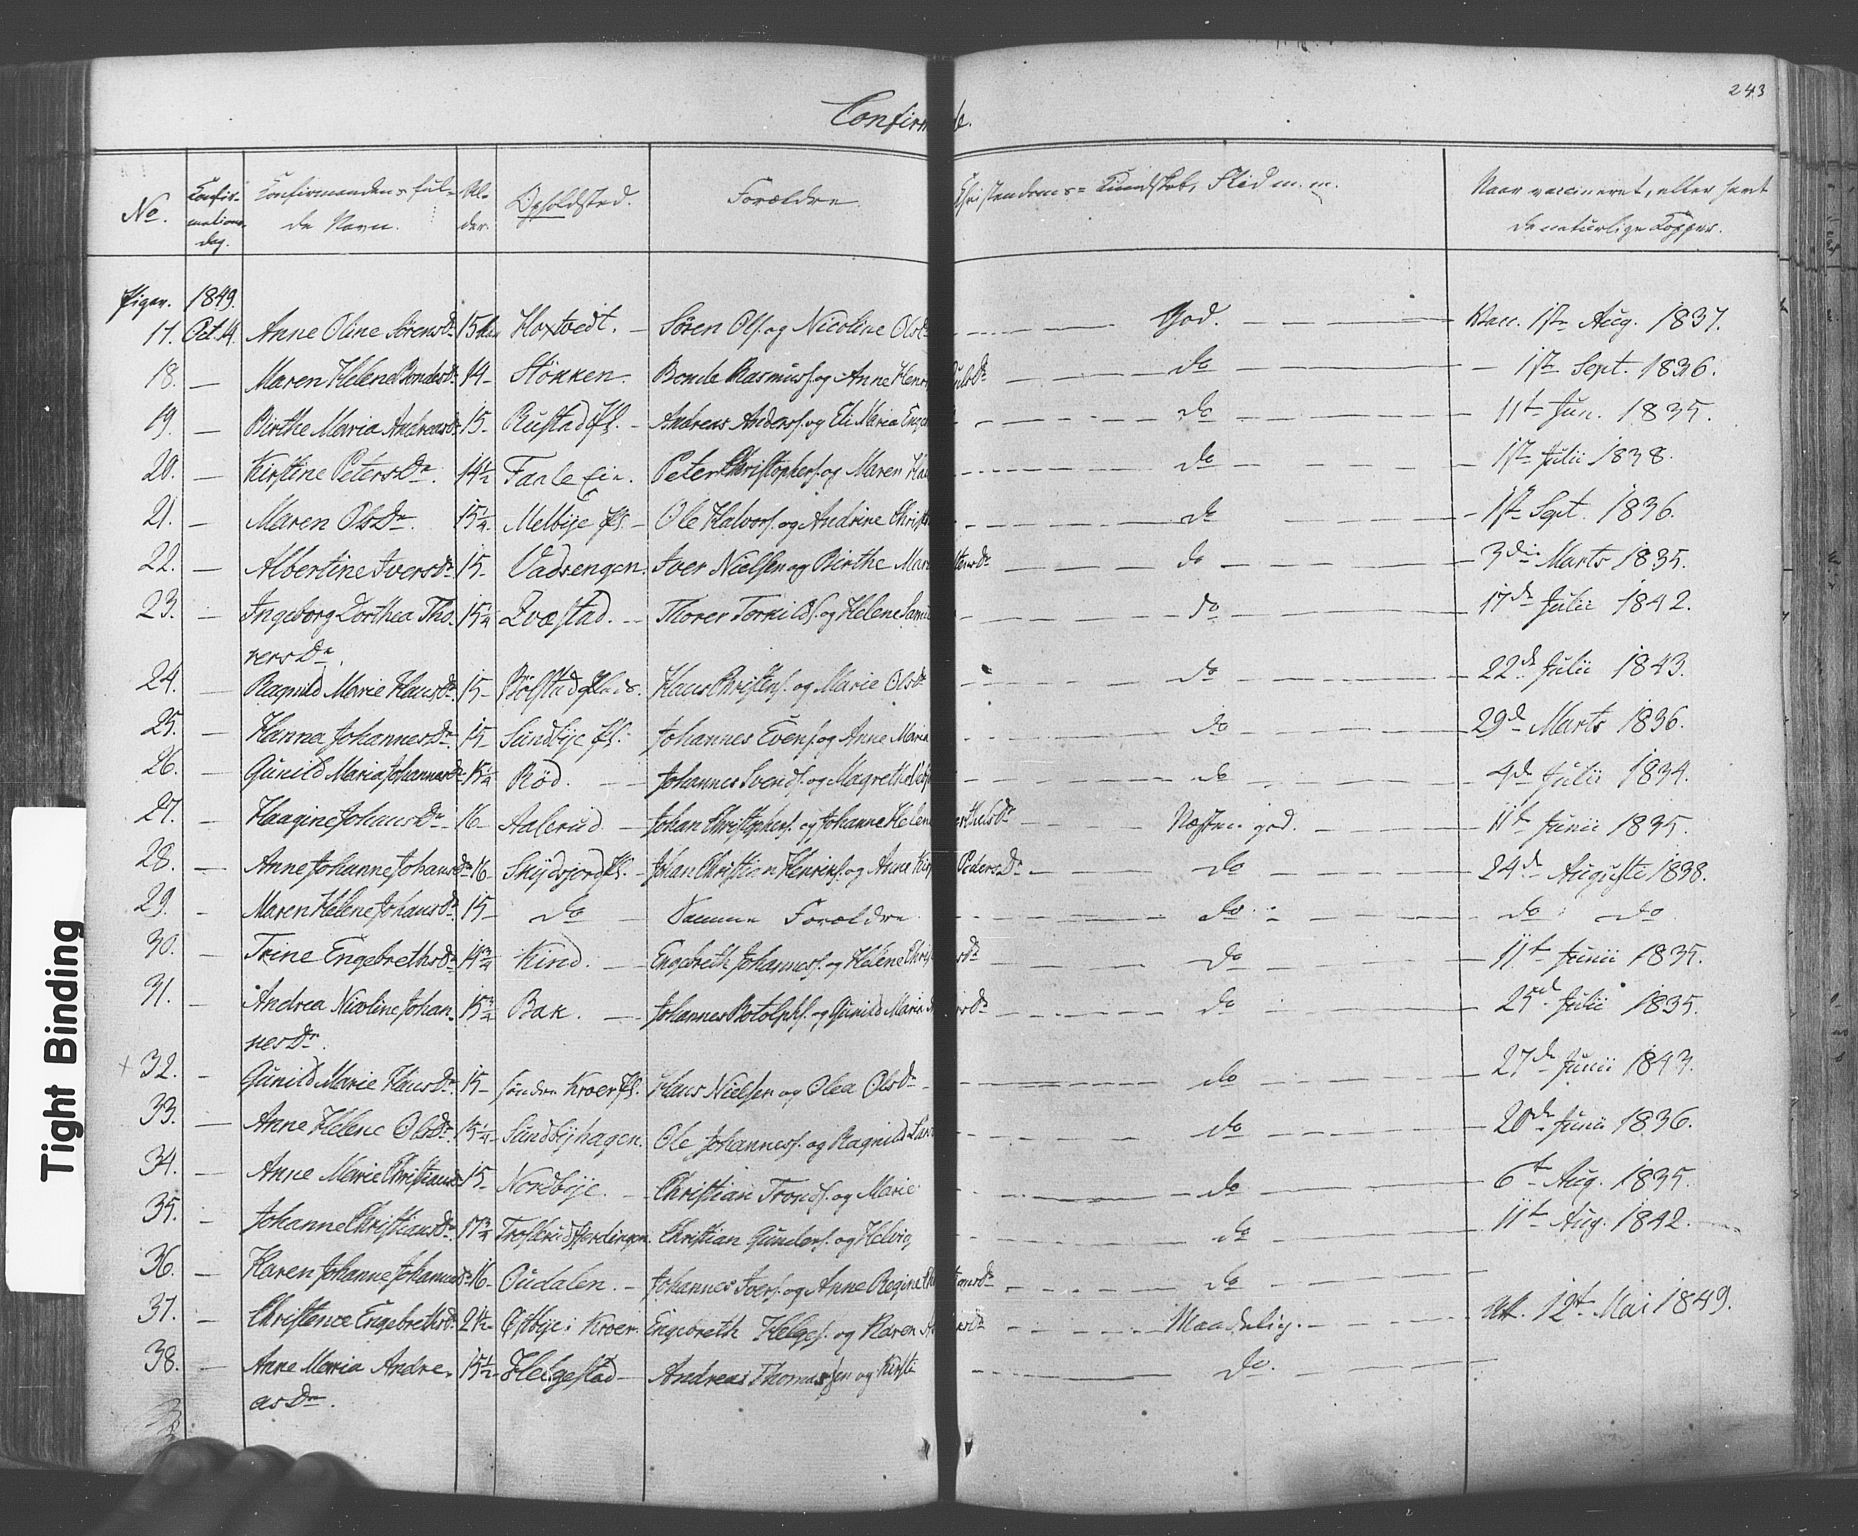 243
Confirm de.
No. Confirmations dag. Confirmandens fulde Navn. Alder. Opholdsted. Forældre Christendoms-Kundskab, Flid m. m. Naar vaccineret, eller havt de naturlige Kopper.
Piger. 1849.
17. Oct. 14. Anne Oline SørensDr 15 Hoxtvedt. — Søren Ols. og Nicoline OlsDr — God. — Vacc. 1ste Aug. 1837.
18. — Maren Helene BondesDr 14 — Støkken. Bonde Rasmuss. og Anne Henr ulsDr — do — 1ste Sept. 1836.
19. — Birthe Maria AndreasDr 15 — Rustad Pl. — Andreas Anders. og Eli Maria Enge — do — 11te Jun. 1835.
20. — Kirstine PetersDr. 14½ Faale Eie. Peter Christophers. og Maren Ha — do — 1ste Julii 1838.
21. — Maren OlsDr. 15¼ Melbye Pl. — Ole Halvors. og Andrine Christ — do — 1ste Sept. 1836.
22. — Albertine IversDr 15 — Vadsengen. Iver Nielsen og Birthe Mar tensDr — do — 3die Marts 1835.
23. — Ingeborg Dorthea Tho- 15¼ Kvæstad. — Thorer Torkilds. og Helene Samu — do — 17de Julii 1842.
rersDr.
24. — Ragnild Marie HansDr 15 — Bølstad Plads. Hans Christens. og Marie OlsDr — do — 22de Julii 1843.
25. — Hanna JohannesDr. 15 — Sundbye Pl. Johannes Evens. og Anne Maria — do — 29de Marts 1836.
26. — Gunild Maria JohannesDr 15¼ Rød. — Johannes Svends. og Magrethe — do — 4de Julii 1834.
27. — Haagine JohansDr. 16 — Aalerud — Johan Christophers. og Johanne Helene thusDr — Næsten god. — 11te Junii 1835.
28. — Anne Johanne JohansDr 16 — Skydsjord Pl. — Johan Christian Henriks. og Anne Kir PedersDr — do — 24de Auguste 1838.
29. — Maren Helene JohansDr. 15 — do — Samme Forældre — do — do do
30. — Trine EngebrethsDr 14¾ Kind. — Engebreth Johannes. og Helene Chris sDr — do — 11te Junii 1835.
31. — Andrea Nicoline Johan- 15¾ Bak. — Johannes Rotolphs. og Gunild Maria sDr — do — 25de Julii 1835.
nesDr.
+ 32. — Gunild Marie HansDr 15 — Søndre Kroer Pl. Hans Nielsen og Olea OlsDr — do — 27de Junii 1843.
33. — Anne Helene OlsDr. 15¼ Sundbyhagen. Ole Johannes. og Ragnild Lar — do — 20de Junii 1836.
34. — Anne Marie ChristiansDr 15 — Nordbye. — Christian Tronds. og Marie — do — 6te Aug. 1835.
35. — Johanne ChristiansDr. 17¾ Trosterudfjerdingen. Christian Gunders. og Helvig — do — 11te Aug. 1842.
36. — Karen Johanne JohannesDr 16 — Oudalen. — Johannes Ivers. og Anne Regine Ch iansDr — do —
37. — Christence EngebrethsDr. 21½ Østbye i Kroer. Engebreth Helges. og Karen A sDr — Maadelig. — Att. 12te Mai 1849.
38. — Anne Maria Andre- 15½ Helgestad — Andreas Thomassen og Kirsti — do. —
asDr.
Tight Binding